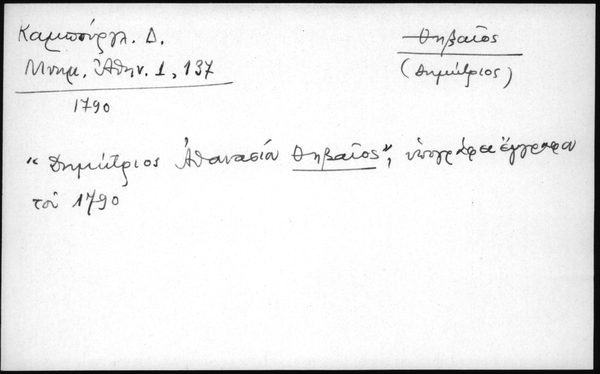 Καμπούργλ. Δ.
Μνημ. Ἀθην. 1, 137
1790
Θηβαῖος
(Δημήτριος)
"Δημήτριος Ἀθανασίου Θηβαῖος", ὑπογράφει ἔγγραφα
τοῦ 1790